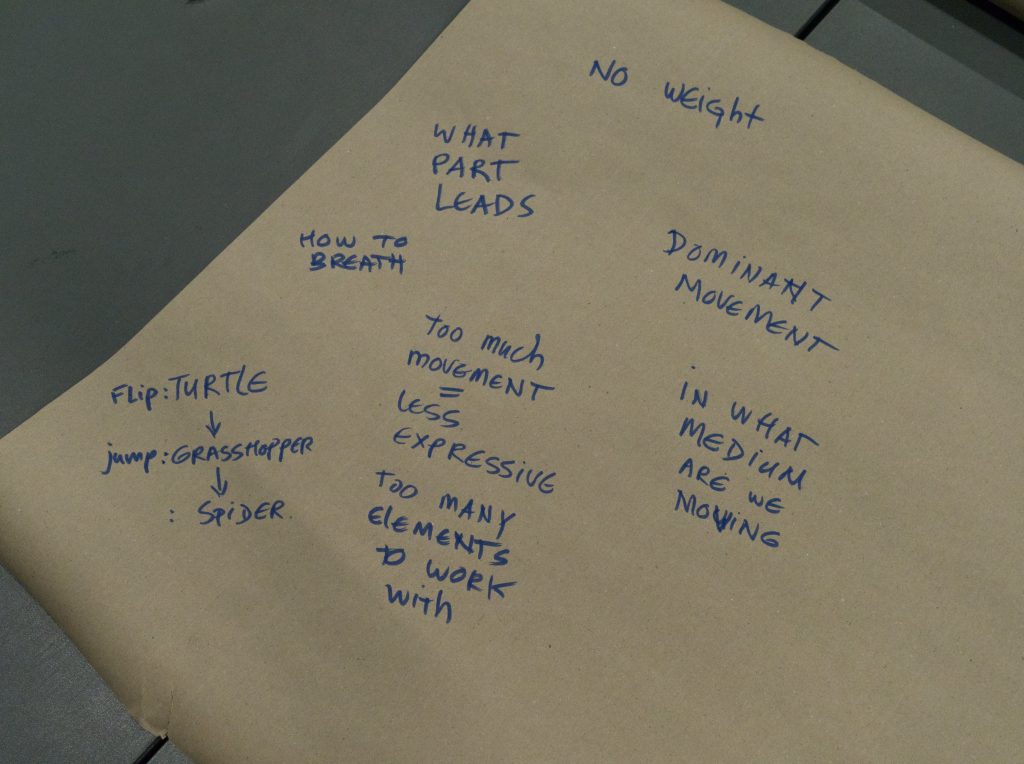 NO WEIGHT
WHAT
PART
LEADS
HOW TO
BREATH
DOMINANT
MOVEMENT
Too much
MOVEMENT
=
LESS
EXPRESSIVE
Too MANY
ELEMENTS
TO WORK
With
IN WHAT
MEDIUM
ARE WE
MOVING
FLip: TURTLE
↓
jump: GRASSHOPPER
↓
: SPiDER